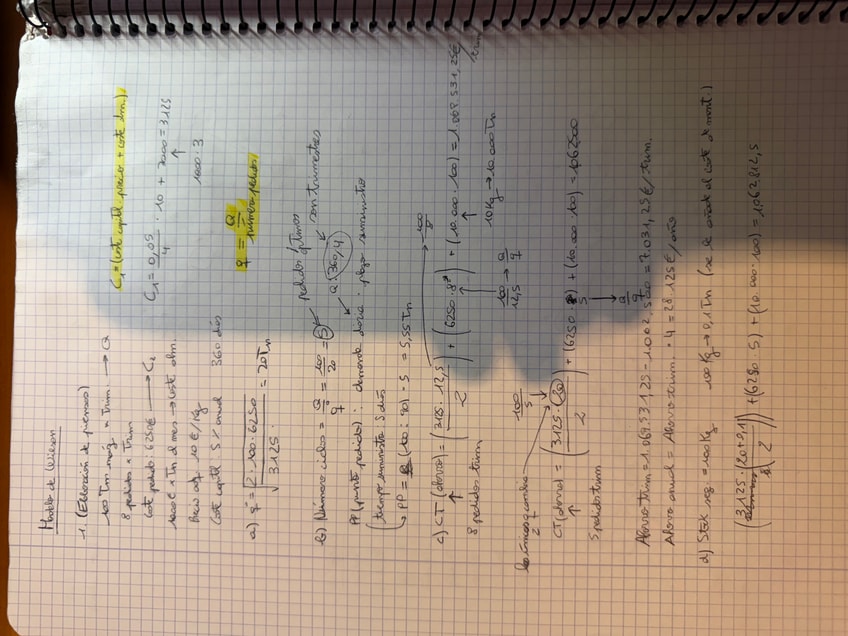 Modelo de Wilson
1. (Elaboración de piensos)
100 Tm maíz × Trim. → Q
8 pedidos × Trim
Coste pedido: 6250€ → C₂
1000€ × Tm al mes → coste alm.
Precio adq. 10€/Kg
Coste capital 5% anual 360 días
C₁ = (coste capital · precio + coste alm.)
C₁ = 0,05/4 · 10 + 3000 = 3125
1000 · 3
a) q = √(2 · 100 · 6250 / 3125) = 20Tm
q = Q / número pedidos
b) Número ciclos = Q/q = 100/20 = 5 → pedidos óptimos
Q : 360/4 → son trimestres
PP (punto pedido) : demanda diaria · plazo suministro
(tiempo suministro 5 días
↳ PP = (100 : 90) · 5 = 5,55 Tm
c) CT (ahorro) = (3125 · 12,5 / 2) + (6250 · 8) + (10.000 · 100) = 1.069.531,25€/trim
100/8
8 pedidos trim
10Kg → 10.000Tn
100/12,5 → Q/q
100/5
CT (ahorro) = (3125 · 20 / 2) + (6250 · 5) + (10.000 · 100) = 1062500
5 pedidos trim
Q/q
Ahorro trim = 1.069.531,25 - 1.062.500 = 7.031,25€/trim.
Ahorro anual = Ahorro trim. · 4 = 28.125€/año
d) Stok seg. = 100Kg 100Kg → 0,1Tm (se le añade al coste de mant.)
(3.125 (20 + 0,1) / 2) + (6250 · 5) + (10.000 · 100) = 1062812,5